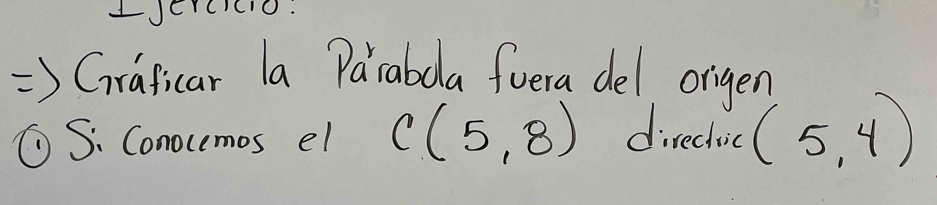 Ejercicio:
=> Gráficar la Párabola fuera del origen
① Si Conocemos el C(5,8) directric(5,4)